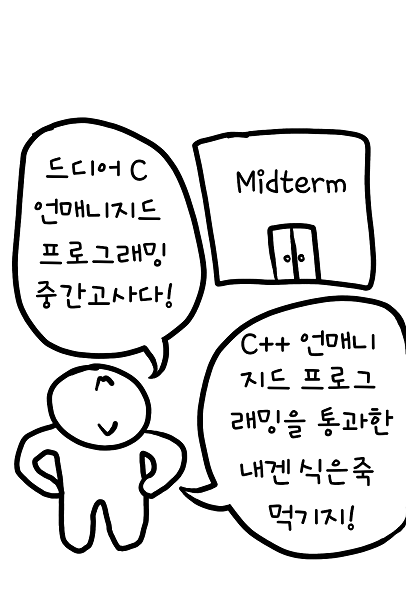 드디어 C
언매니지드
프로그래밍
중간고사다!
Midterm
C++ 언매니
지드 프로그
래밍을 통과한
내겐 식은죽
먹기지!